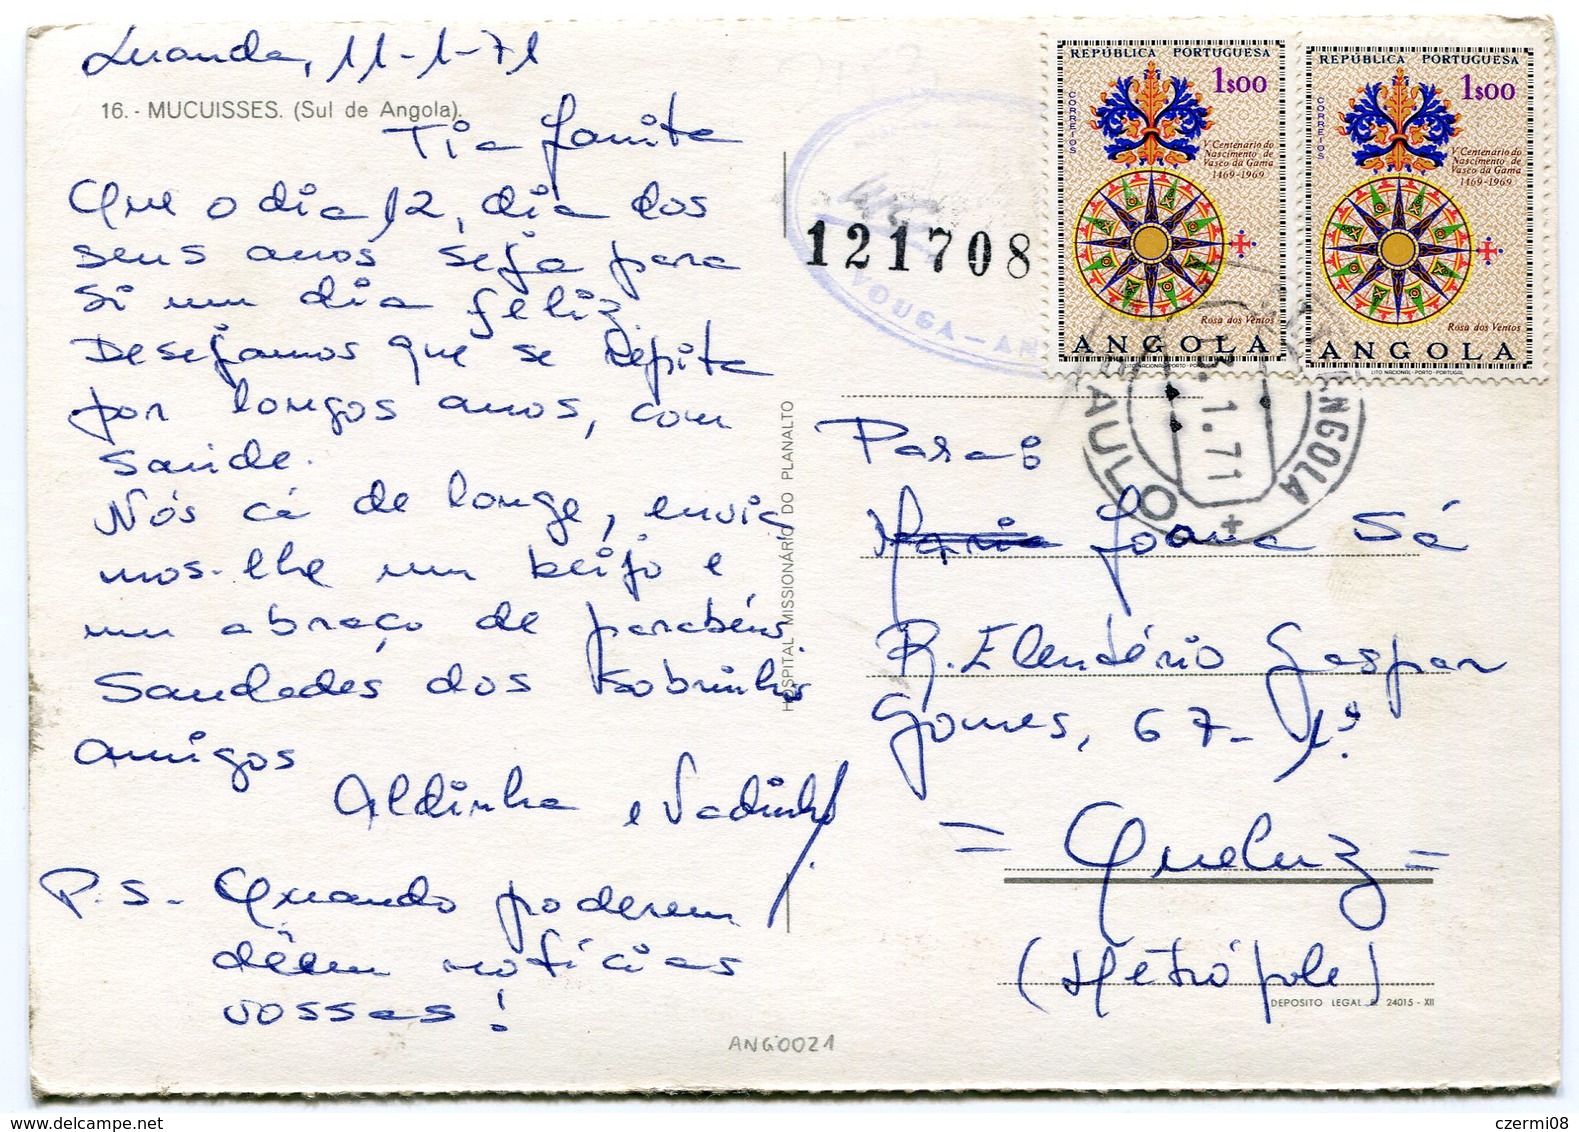 Luanda, 11-1-71
16. - MUCUISSES. (Sul de Angola).
Tia Janita
Que o dia 12, dia dos
seus anos seja para
si um dia feliz.
Desejamos que se repita
por longos anos, com
saúde.
Nós cá de longe, envia
mos-lhe um beijo e
um abraço de parabéns.
Saudades dos sobrinhos
amigos
Aldinha e Vadinho
P.S. - Quando poderem
dêem notícias
vossas!
HOSPITAL MISSIONÁRIO DO PLANALTO
121708
VOUGA - AN
REPÚBLICA PORTUGUESA
1$00
CORREIOS
V Centenário do
Nascimento de
Vasco da Gama
1469-1969
Rosa dos Ventos
ANGOLA
LITO NACIONAL - PORTO - PORTUGAL
REPÚBLICA PORTUGUESA
1$00
CORREIOS
V Centenário do
Nascimento de
Vasco da Gama
1469-1969
Rosa dos Ventos
ANGOLA
LITO NACIONAL - PORTO - PORTUGAL
3.1.71
AULO
ANGOLA
Para:
Maria Joana Sá
R. Eleutério Gaspar
Gomes, 67-1º.
= Queluz =
(Metrópole)
DEPOSITO LEGAL B. 24015 - XII
ANG0021
czermi08